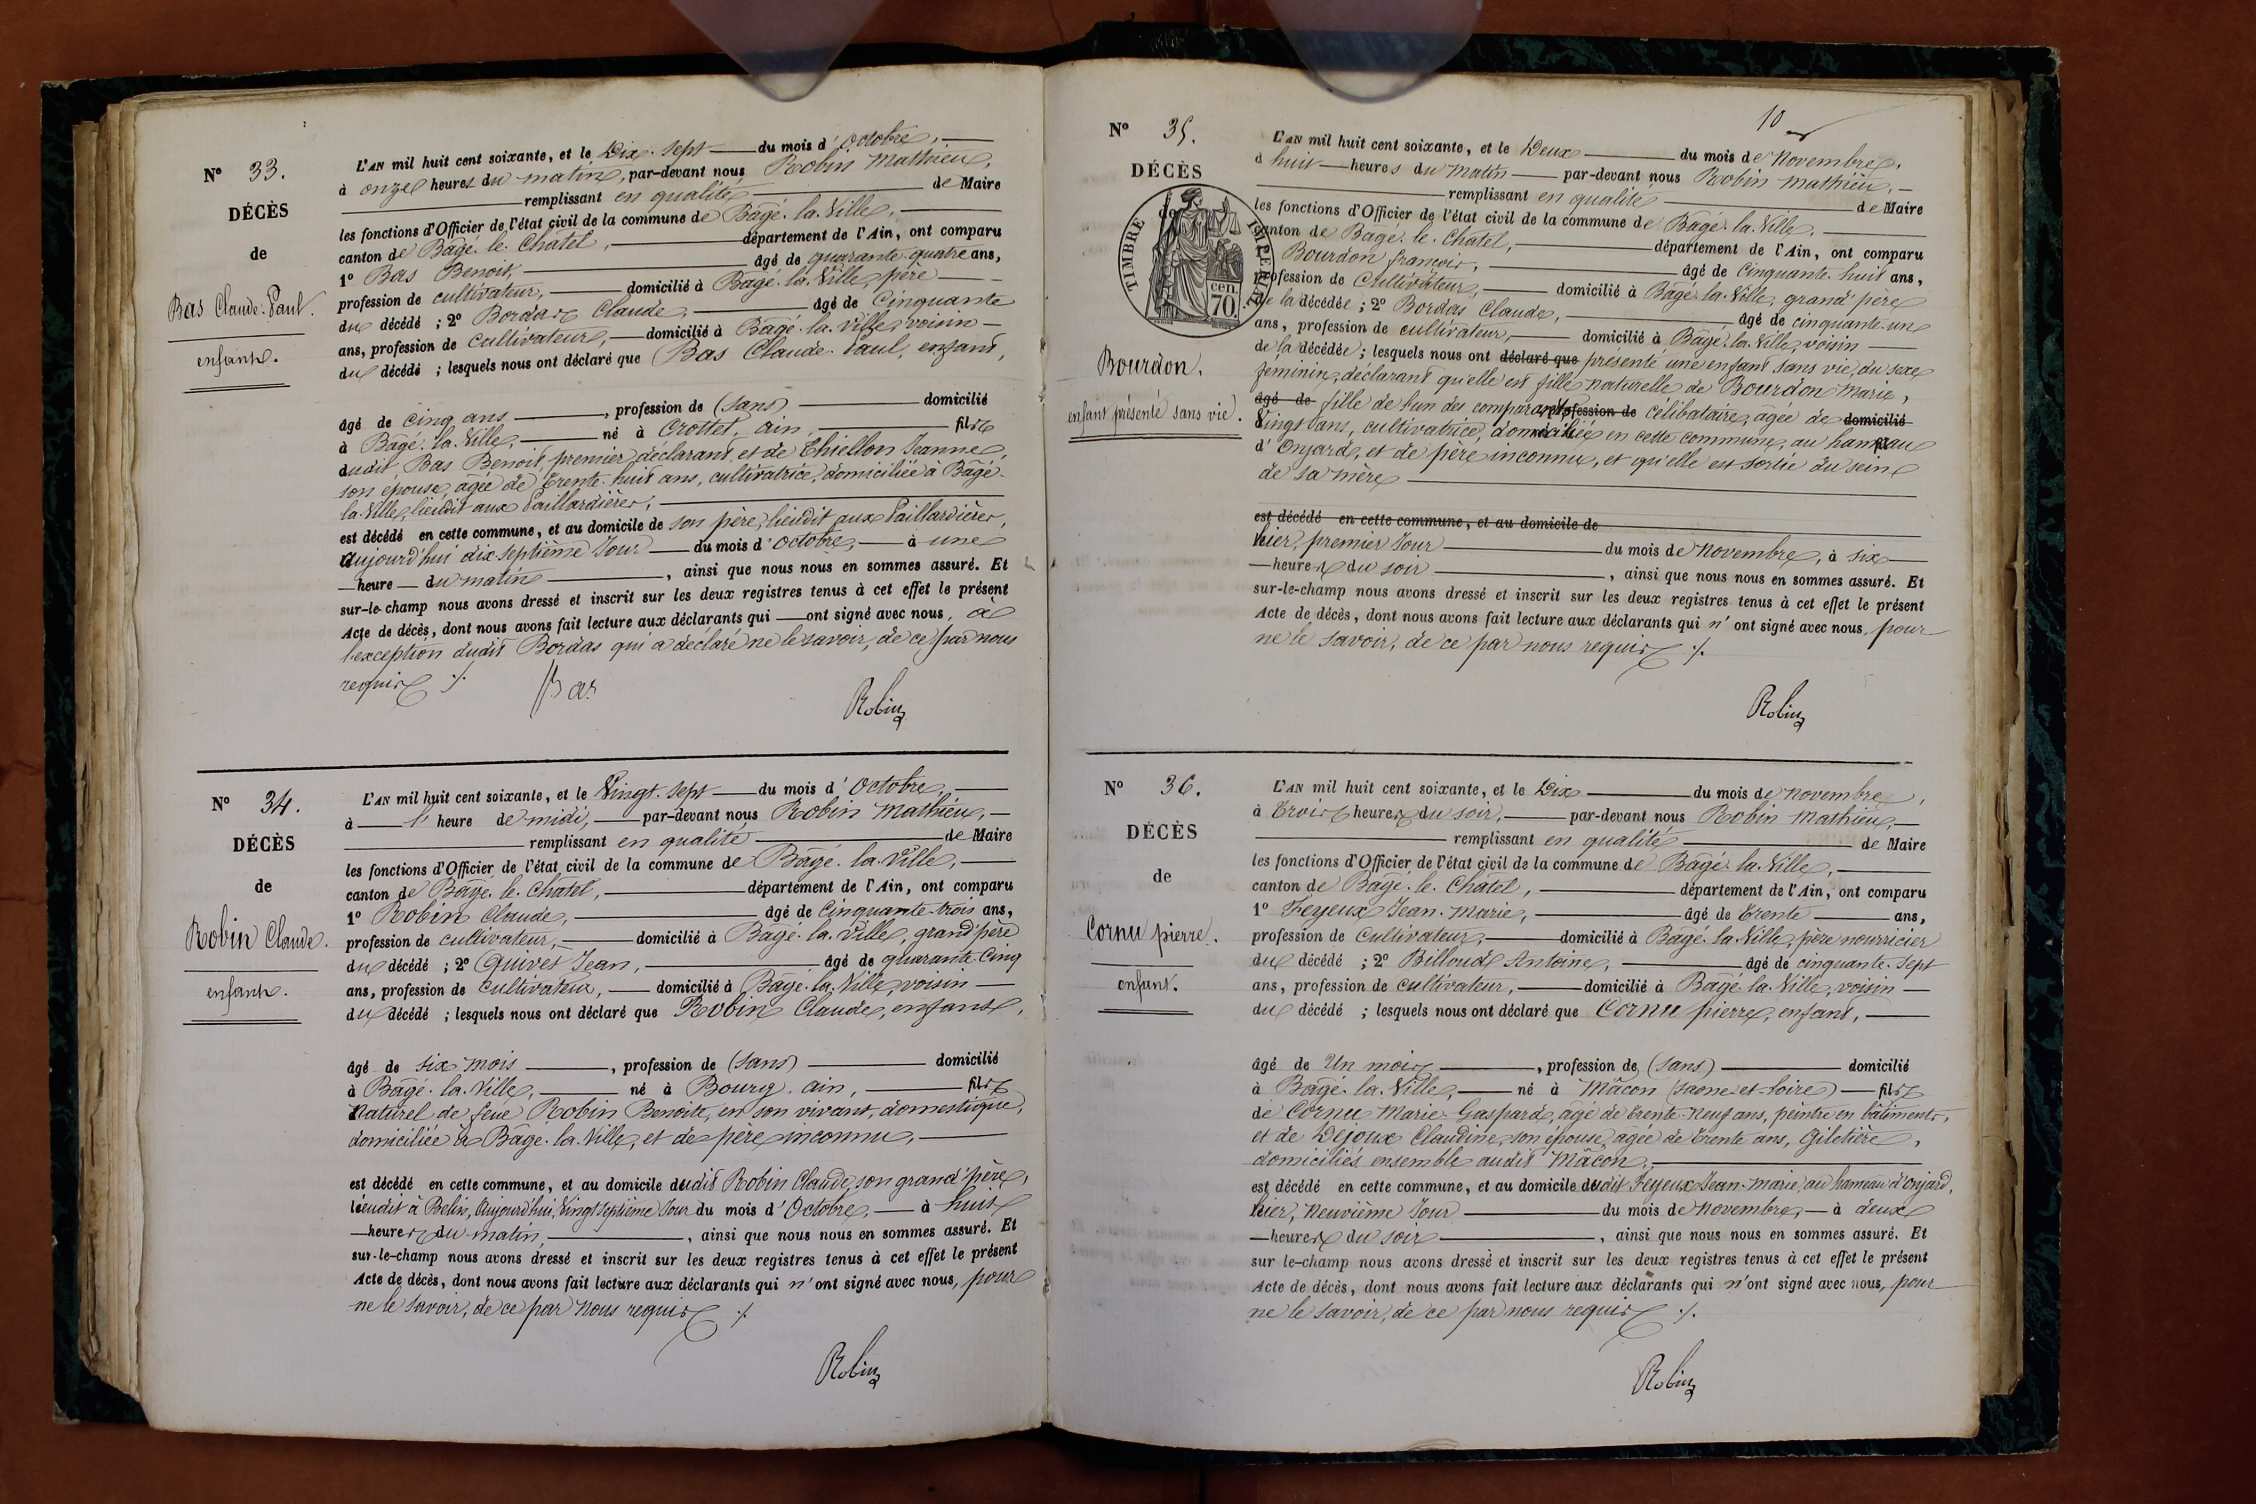 N° 33.
DÉCÈS
de
Bas Claude-Paul.
enfant.
L'AN mil huit cent soixante, et le Dix-sept du mois d'Octobre,
à onze heures du matin, par-devant nous Robin Mathieu,
remplissant en qualité de Maire
les fonctions d'Officier de l'état civil de la commune de Bâgé-la-Ville,
canton de Bâgé-le-Châtel, département de l'Ain, ont comparu
1° Bas Benoit, âgé de quarante-quatre ans,
profession de cultivateur, domicilié à Bâgé-la-Ville, père
du décédé ; 2° Bordas Claude, âgé de Cinquante
ans, profession de cultivateur, domicilié à Bâgé-la-Ville, voisin
du décédé ; lesquels nous ont déclaré que Bas Claude-Paul, enfant,
âgé de cinq ans, profession de (sans) domicilié
à Bâgé-la-Ville, né à Crottet, ain, fils
dudit Bas Benoit, premier déclarant, et de Thiellon Jeanne,
son épouse, agée de trente-huit ans, cultivatrice, domiciliée à Bâgé-
la-Ville, lieudit aux Paillardières,
est décédé en cette commune, et au domicile de son père, lieudit aux Paillardières,
aujourd'hui dix septième Jour du mois d'octobre, à une
heure du matin, ainsi que nous nous en sommes assuré. Et
sur-le-champ nous avons dressé et inscrit sur les deux registres tenus à cet effet le présent
Acte de décès, dont nous avons fait lecture aux déclarants qui ont signé avec nous, à
l'exception dudit Bordas qui a declaré ne le savoir, de ce par nous
requis ./.
Bas
Robin
N° 34.
DÉCÈS
de
Robin Claude.
enfant.
L'AN mil huit cent soixante, et le Vingt-sept du mois d'Octobre,
à l'heure de midi, par-devant nous Robin Mathieu,
remplissant en qualité de Maire
les fonctions d'Officier de l'état civil de la commune de Bâgé-la-Ville,
canton de Bâgé-le-Châtel, département de l'Ain, ont comparu
1° Robin Claude, âgé de Cinquante-trois ans,
profession de cultivateur, domicilié à Bâgé-la-Ville, grand'père
du décédé ; 2° Quivet Jean, âgé de quarante-cinq
ans, profession de Cultivateur, domicilié à Bâgé-la-Ville, voisin
du décédé ; lesquels nous ont déclaré que Robin Claude, enfant,
âgé de six mois, profession de (sans) domicilié
à Bâgé-la-Ville, né à Bourg-ain, fils
naturel de feue Robin Benoite, en son vivant, domestique,
domiciliée à Bâgé-la-Ville, et de père inconnu,
est décédé en cette commune, et au domicile dudit Robin Claude, son grand'père,
lieudit à Belin, Aujourd'hui, Vingt septième Jour du mois d'Octobre, à huit
heures du matin, ainsi que nous nous en sommes assuré. Et
sur-le-champ nous avons dressé et inscrit sur les deux registres tenus à cet effet le présent
Acte de décès, dont nous avons fait lecture aux déclarants qui n'ont signé avec nous, pour
ne le savoir, de ce par nous requis ./.
Robin
10
N° 35.
DÉCÈS
de
TIMBRE IMPERIAL
cen. 70.
Bourdon.
enfant présenté sans vie.
L'AN mil huit cent soixante, et le Deux du mois de Novembre,
à huit heures du matin par-devant nous Robin Mathieu,
remplissant en qualité de Maire
les fonctions d'Officier de l'état civil de la commune de Bâgé-la-Ville,
canton de Bâgé-le-Châtel, département de l'Ain, ont comparu
Bourdon françois, âgé de Cinquante-huit ans,
profession de Cultivateur, domicilié à Bâgé-la-Ville, grand'père
de la décédée ; 2° Bordas Claude, âgé de cinquante-un
ans, profession de cultivateur, domicilié à Bâgé-la-Ville, voisin
de la décédée ; lesquels nous ont déclaré que présenté une enfant sans vie, du sexe
feminin, déclarant qu'elle est fille naturelle de Bourdon Marie,
âgé de fille de l'un des comparants profession de célibataire, agée de domicilié
Vingt ans, cultivatrice, domiciliée en cette commune, au hameau
d'Onjard, et de père inconnu, et qu'elle est sortie du sein
de sa mère
est décédé en cette commune, et au domicile de
hier, premier Jour du mois de Novembre, à six
heures du soir, ainsi que nous nous en sommes assuré. Et
sur-le-champ nous avons dressé et inscrit sur les deux registres tenus à cet effet le présent
Acte de décès, dont nous avons fait lecture aux déclarants qui n'ont signé avec nous, pour
ne le savoir, de ce par nous requis ./.
Robin
N° 36.
DÉCÈS
de
Cornu pierre.
enfant.
L'AN mil huit cent soixante, et le Dix du mois de novembre,
à trois heures du soir, par-devant nous Robin Mathieu,
remplissant en qualité de Maire
les fonctions d'Officier de l'état civil de la commune de Bâgé-la-Ville,
canton de Bâgé-le-Châtel, département de l'Ain, ont comparu
1° Feyeux Jean-Marie, âgé de trente ans,
profession de Cultivateur, domicilié à Bâgé-la-Ville, père nourricier
du décédé ; 2° Billoud Antoine, âgé de cinquante-sept
ans, profession de cultivateur, domicilié à Bâgé-la-Ville, voisin
du décédé ; lesquels nous ont déclaré que Cornu pierre, enfant,
âgé de Un mois, profession de (sans) domicilié
à Bâgé-la-Ville, né à Mâcon (saone-et-loire) fils
de Cornu Marie-Gaspard, agé de trente-neuf ans, peintre en bâtiments,
et de Dejoux Claudine, son épouse, agée de trente ans, Giletière,
domiciliés ensemble audit Mâcon,
est décédé en cette commune, et au domicile dudit Feyeux Jean-Marie, au hameau d'Onjard,
hier, neuvième Jour du mois de Novembre, à deux
heures du soir, ainsi que nous nous en sommes assuré. Et
sur-le-champ nous avons dressé et inscrit sur les deux registres tenus à cet effet le présent
Acte de décès, dont nous avons fait lecture aux déclarants qui n'ont signé avec nous, pour
ne le savoir, de ce par nous requis ./.
Robin